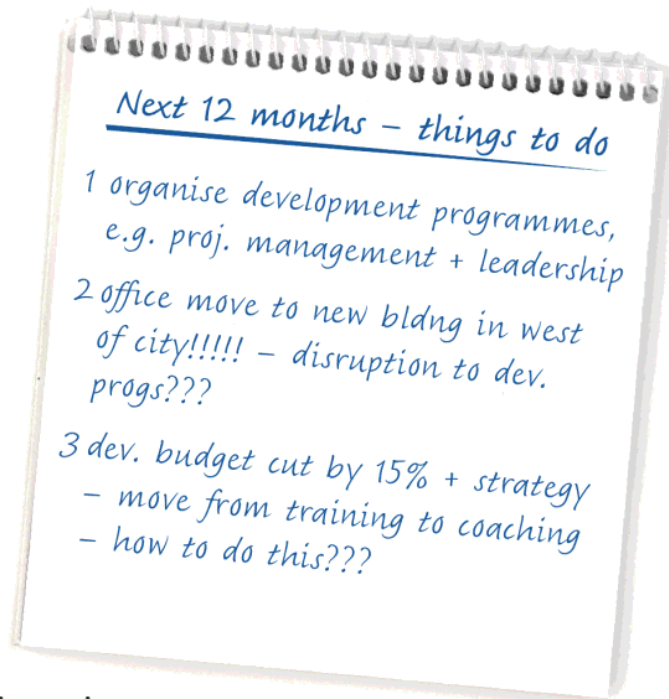 Next 12 months – things to do
1 organise development programmes,
e.g. proj. management + leadership
2 office move to new bldng in west
of city!!!!! – disruption to dev.
progs???
3 dev. budget cut by 15% + strategy
– move from training to coaching
– how to do this???